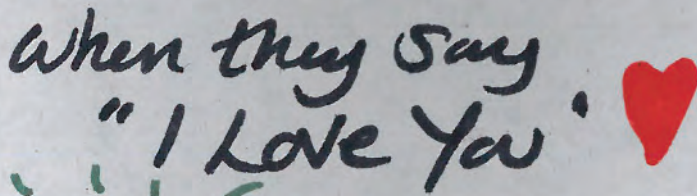 when they say
"I Love You"